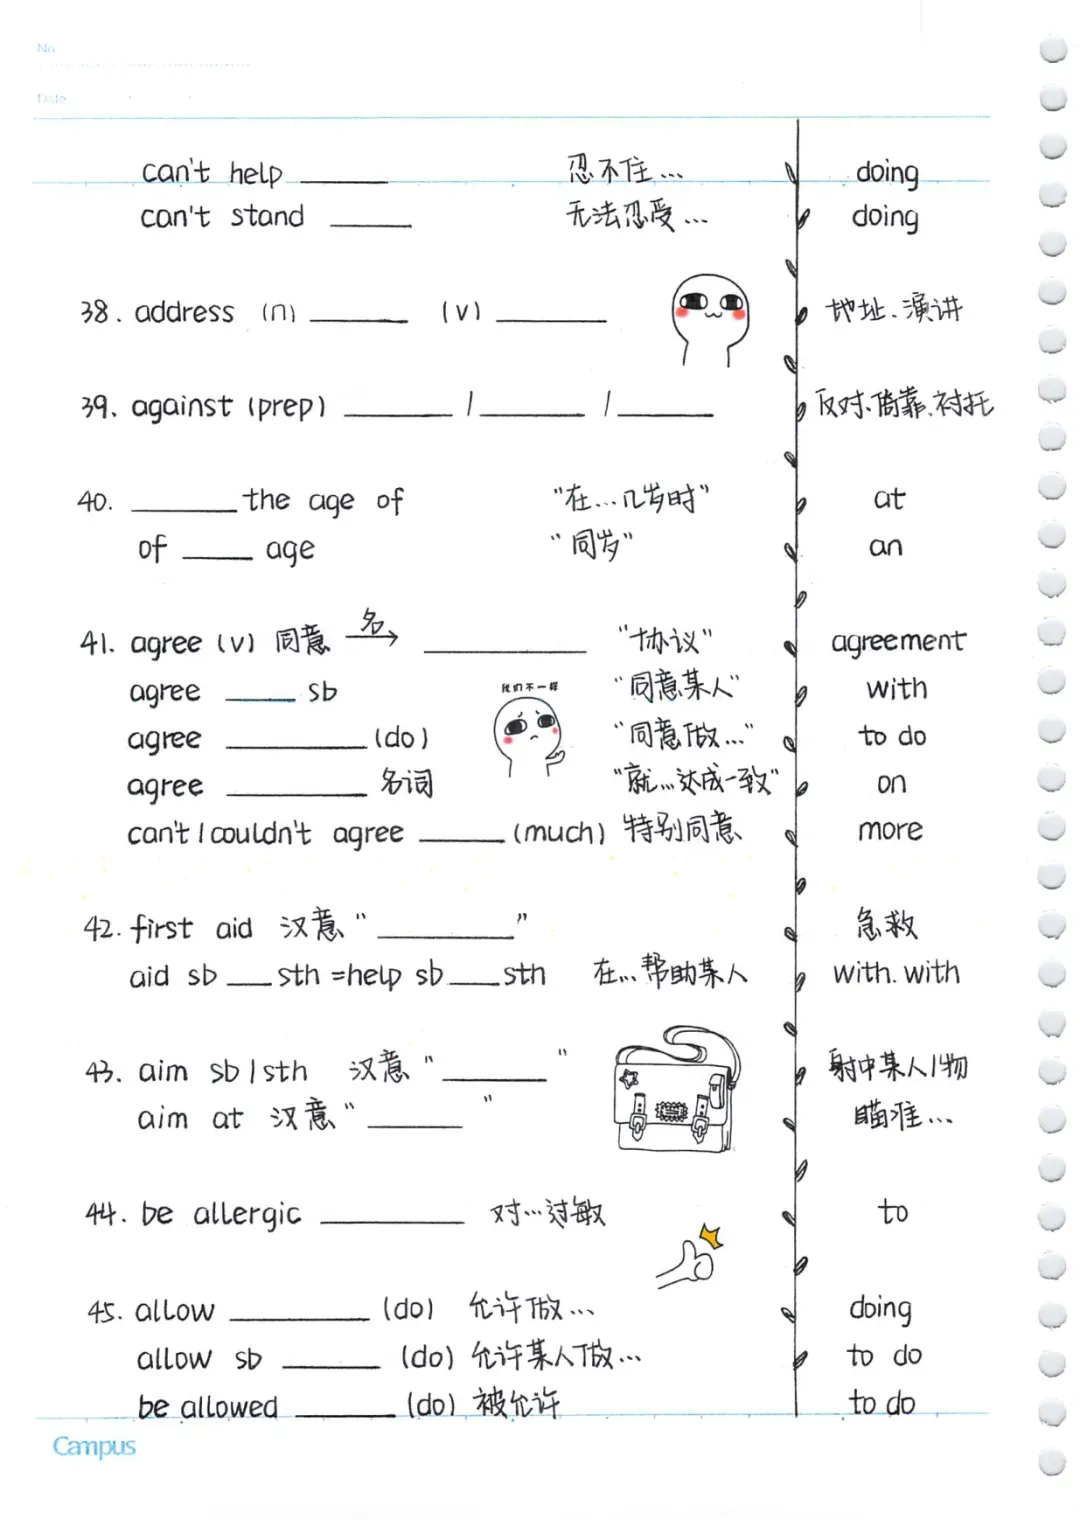 No.
Date
can't help ______ 忍不住… doing
can't stand ______ 无法忍受… doing
38. address (n) ______ (v) ______ 地址、演讲
39. against (prep) ______ / ______ / ______ 反对、倚靠、衬托
40. ______ the age of "在…几岁时" at
of ____ age "同岁" an
41. agree (v) 同意 名→ ______ "协议" agreement
我们不一样
agree ____ sb "同意某人" with
agree ______ (do) "同意做…" to do
agree ______ 名词 "就…达成一致" on
can't / couldn't agree ____ (much) 特别同意 more
42. first aid 汉意 "______" 急救
aid sb ___ sth = help sb ___ sth 在…帮助某人 with. with
43. aim sb / sth 汉意 "______" 射中某人/物
aim at 汉意 "______" 瞄准…
44. be allergic ______ 对…过敏 to
45. allow ______ (do) 允许做… doing
allow sb ______ (do) 允许某人做… to do
be allowed ______ (do) 被允许 to do
Campus